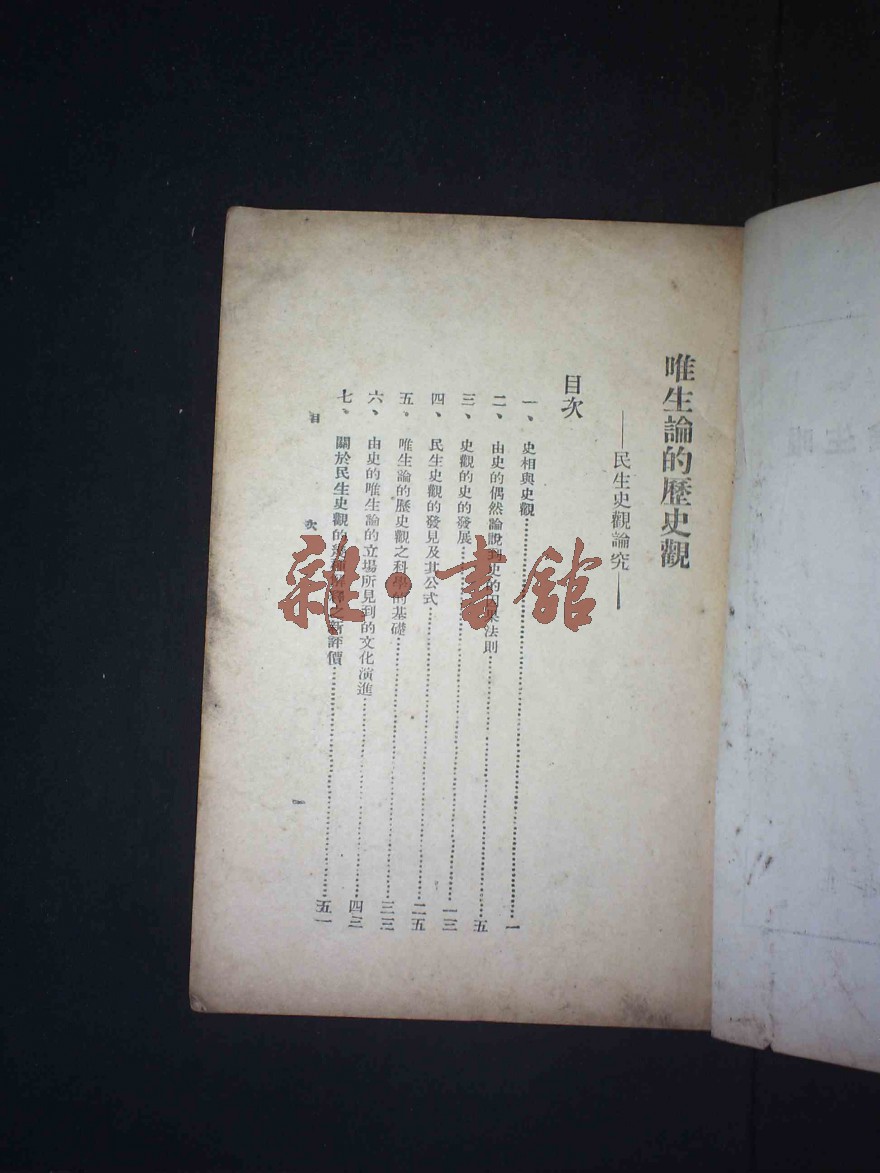 唯生論的歷史觀
——民生史觀論究——
目次
一、史相與史觀……一
二、由史的偶然論說到史的因果法則……五
三、史觀的史的發展……一三
四、民生史觀的發見及其公式……二五
五、唯生論的歷史觀之科學的基礎……三三
六、由史的唯生論的立場所見到的文化演進……四三
七、關於民生史觀的之新評價……五一
目次
一
雜·書館